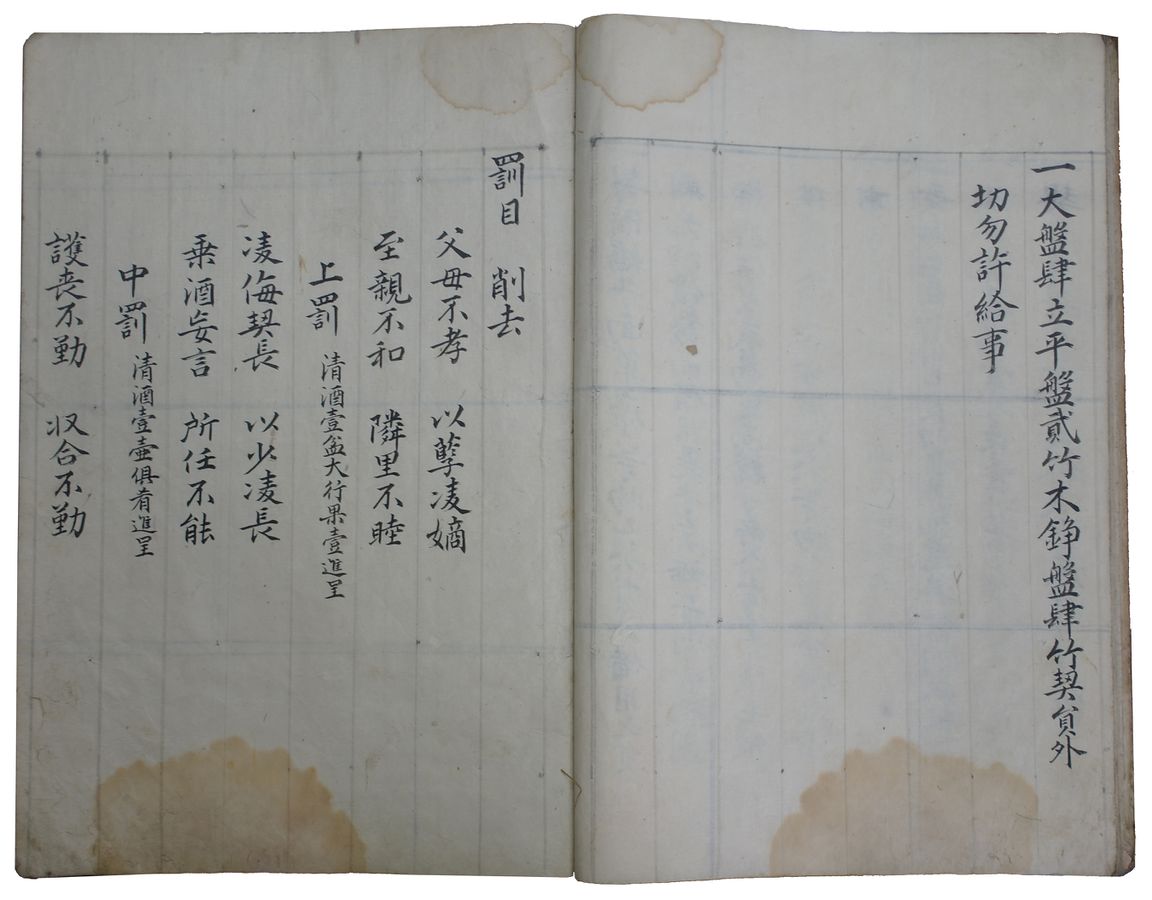 一大盤肆立平盤貳竹木錚盤肆竹契員外
切勿許給事
罰目 削去
父母不孝 以孼凌嫡
至親不和 隣里不睦
上罰 清酒壹盆大行果壹進呈
凌侮契長 以少凌長
乗酒妄言 所任不能
中罰 清酒壹壷俱肴進呈
護丧不勤 収合不勤